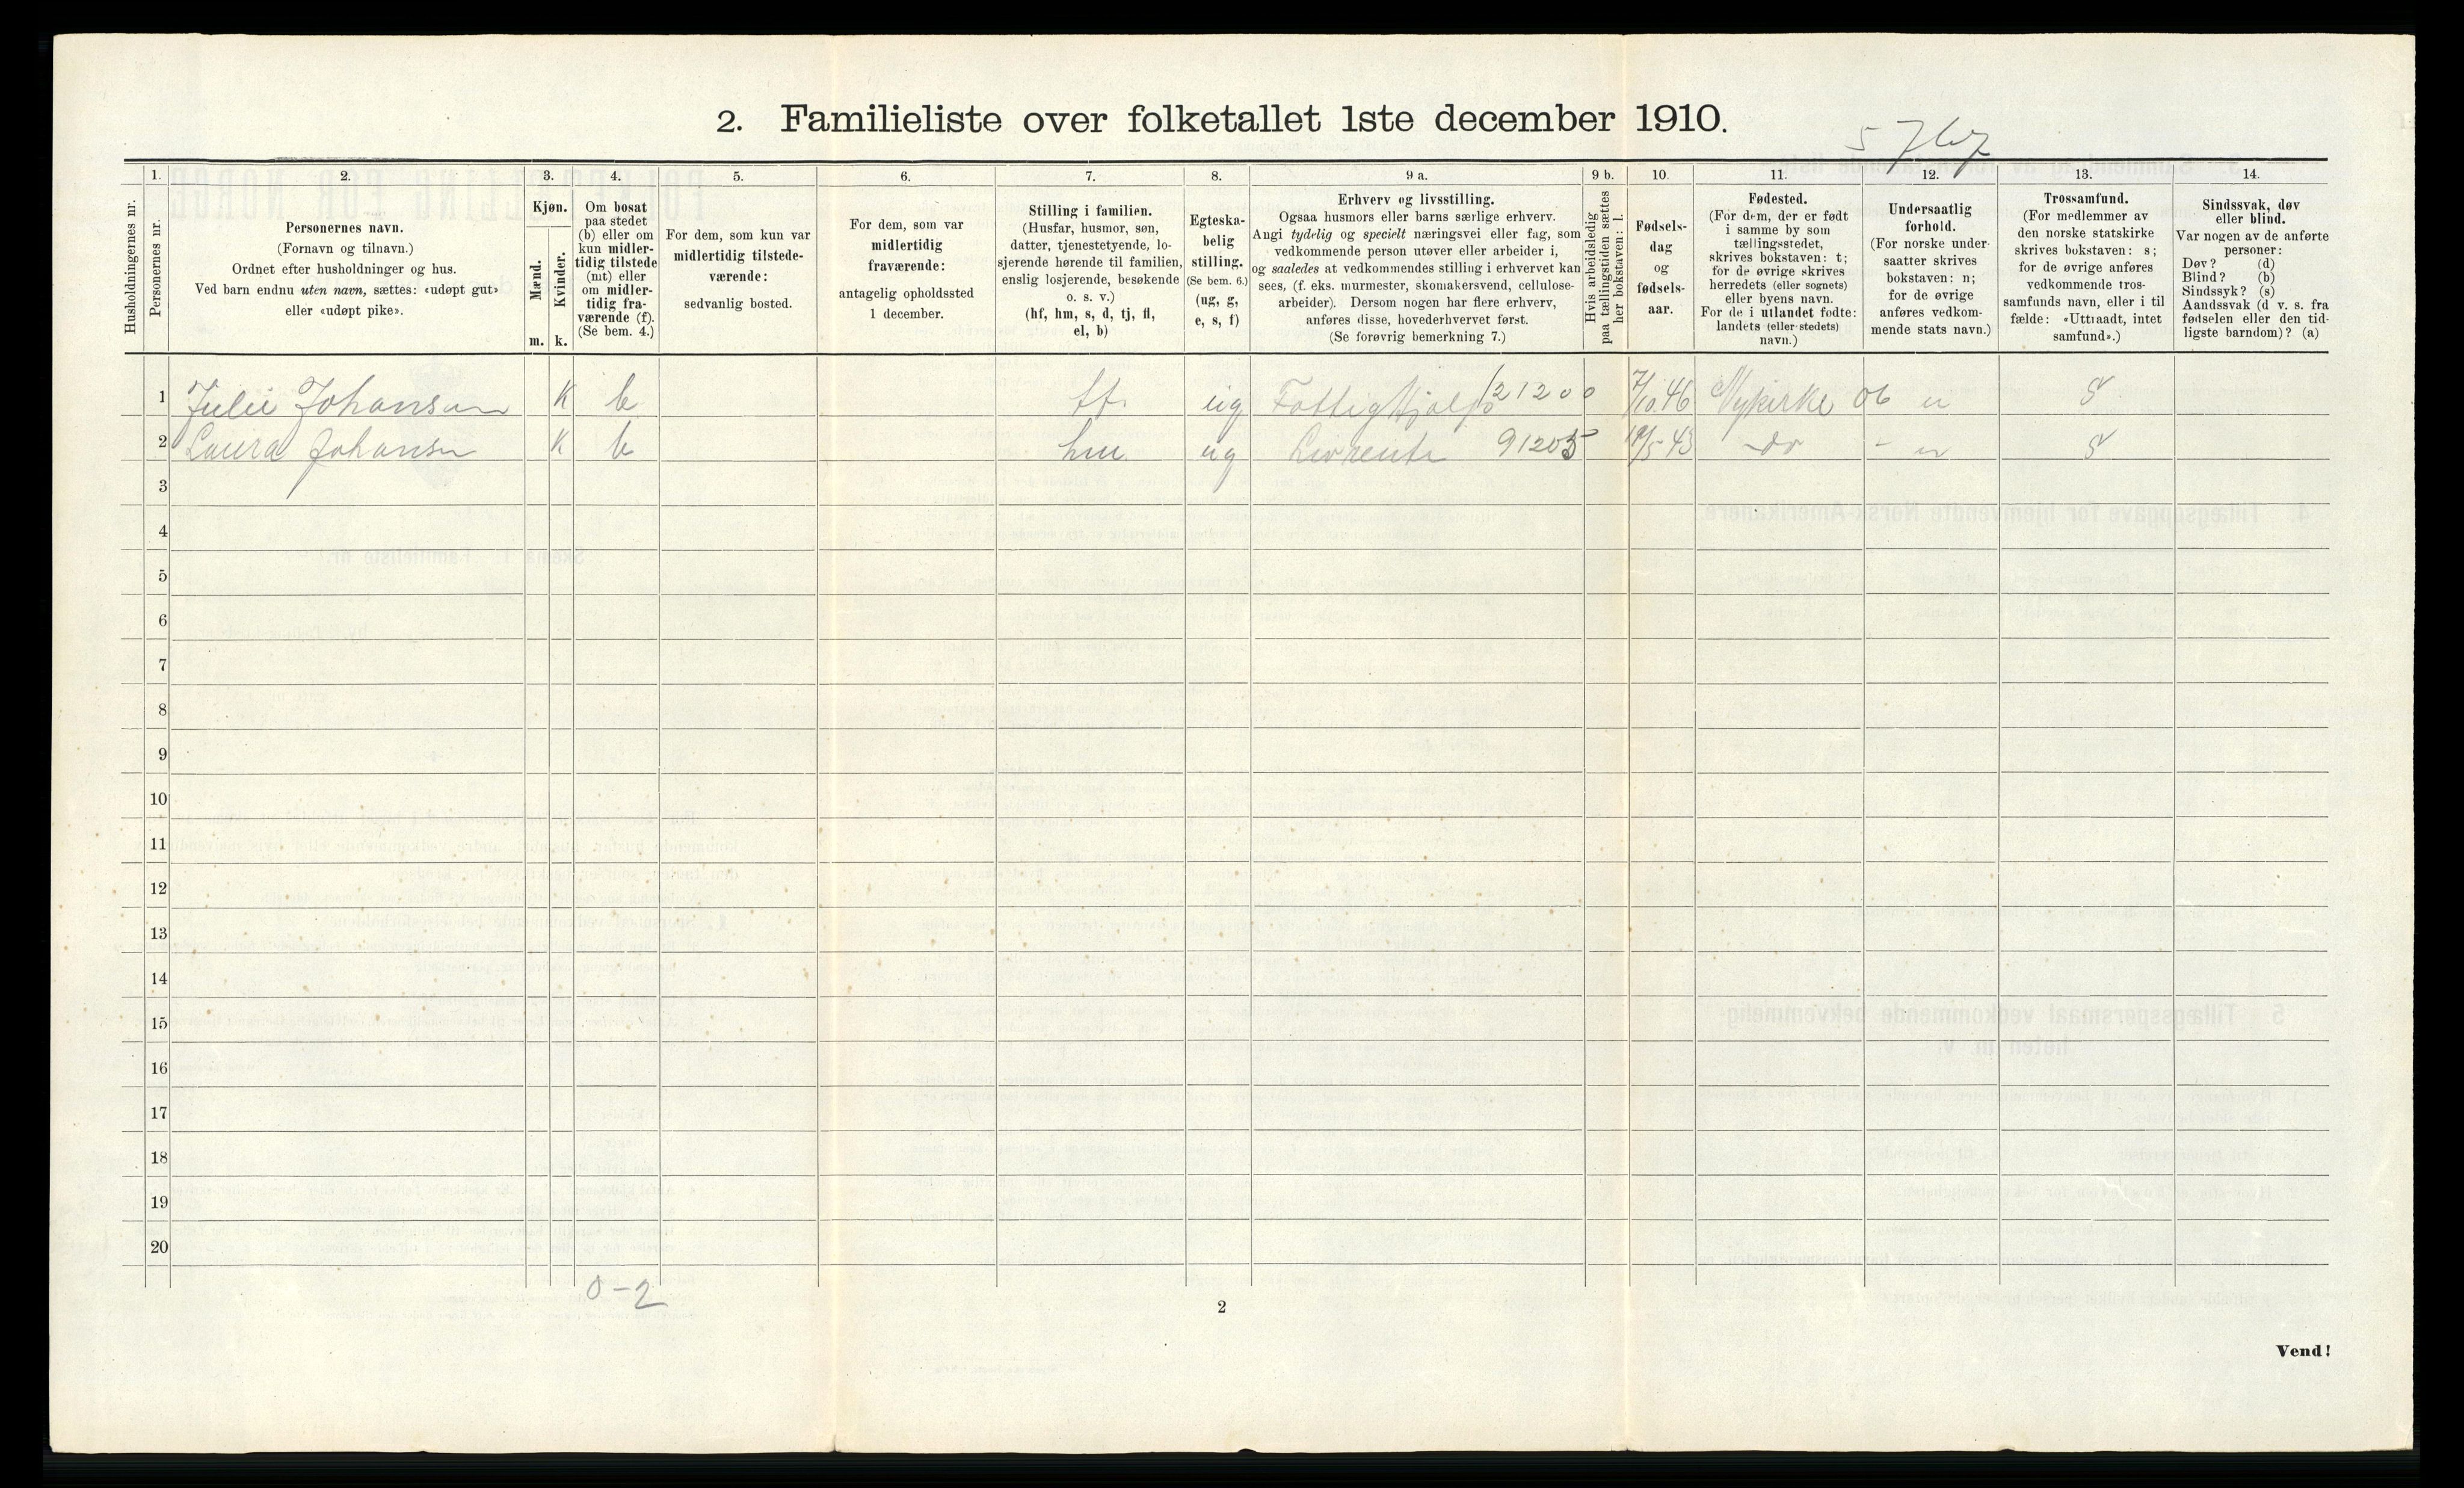 2. Familieliste over folketallet 1ste december 1910.
Husholdningernes nr.
1.
Personernes nr.
2.
Personernes navn.
(Fornavn og tilnavn.)
Ordnet efter husholdninger og hus.
Ved barn endnu uten navn, sættes: «udøpt gut»
eller «udøpt pike».
3.
Kjøn.
Mænd.
Kvinder.
m. k.
4.
Om bosat
paa stedet
(b) eller om
kun midler-
tidig tilstede
(mt) eller
om midler-
tidig fra-
værende (f).
(Se bem. 4.)
5.
For dem, som kun var
midlertidig tilstede-
værende:
sedvanlig bosted.
6.
For dem, som var
midlertidig
fraværende:
antagelig opholdssted
1 december.
7.
Stilling i familien.
(Husfar, husmor, søn,
datter, tjenestetyende, lo-
sjerende hørende til familien,
enslig losjerende, besøkende
o. s. v.)
(hf, hm, s, d, tj, fl,
el, b)
8.
Egteska-
belig
stilling.
(Se bem. 6.)
(ug, g,
e, s, f)
9 a.
Erhverv og livsstilling.
Ogsaa husmors eller barns særlige erhverv.
Angi tydelig og specielt næringsvei eller fag, som
vedkommende person utøver eller arbeider i,
og saaledes at vedkommendes stilling i erhvervet kan
sees, (f. eks. murmester, skomakersvend, cellulose-
arbeider). Dersom nogen har flere erhverv,
anføres disse, hovederhvervet først.
(Se forøvrig bemerkning 7.)
9 b.
Hvis arbeidsledig
paa tællingstiden sættes
her bokstaven: l.
10.
Fødsels-
dag
og
fødsels-
aar.
11.
Fødested.
(For dem, der er født
i samme by som
tællingsstedet,
skrives bokstaven: t;
for de øvrige skrives
herredets (eller sognets)
eller byens navn.
For de i utlandet fødte:
landets (eller stedets)
navn.)
12.
Undersaatlig
forhold.
(For norske under-
saatter skrives
bokstaven: n;
for de øvrige
anføres vedkom-
mende stats navn.)
13.
Trossamfund.
(For medlemmer av
den norske statskirke
skrives bokstaven: s;
for de øvrige anføres
vedkommende tros-
samfunds navn, eller i til
fælde: «Uttraadt, intet
samfund».)
14.
Sindssvak, døv
eller blind.
Var nogen av de anførte
personer:
Døv? (d)
Blind? (b)
Sindssyk? (s)
Aandssvak (d v. s. fra
fødselen eller den tid-
ligste barndom)? (a)
1 Julie Johansen K b ug Fattighjælp 21200 7/10 46 Nykirke 06 n S
2 Laura Johansen K b hm ug Livrente 91205 19/5 43 do - n S
3
4
5
6
7
8
9
10
11
12
13
14
15
16
17
18
19
20
0-2
2
Vend!